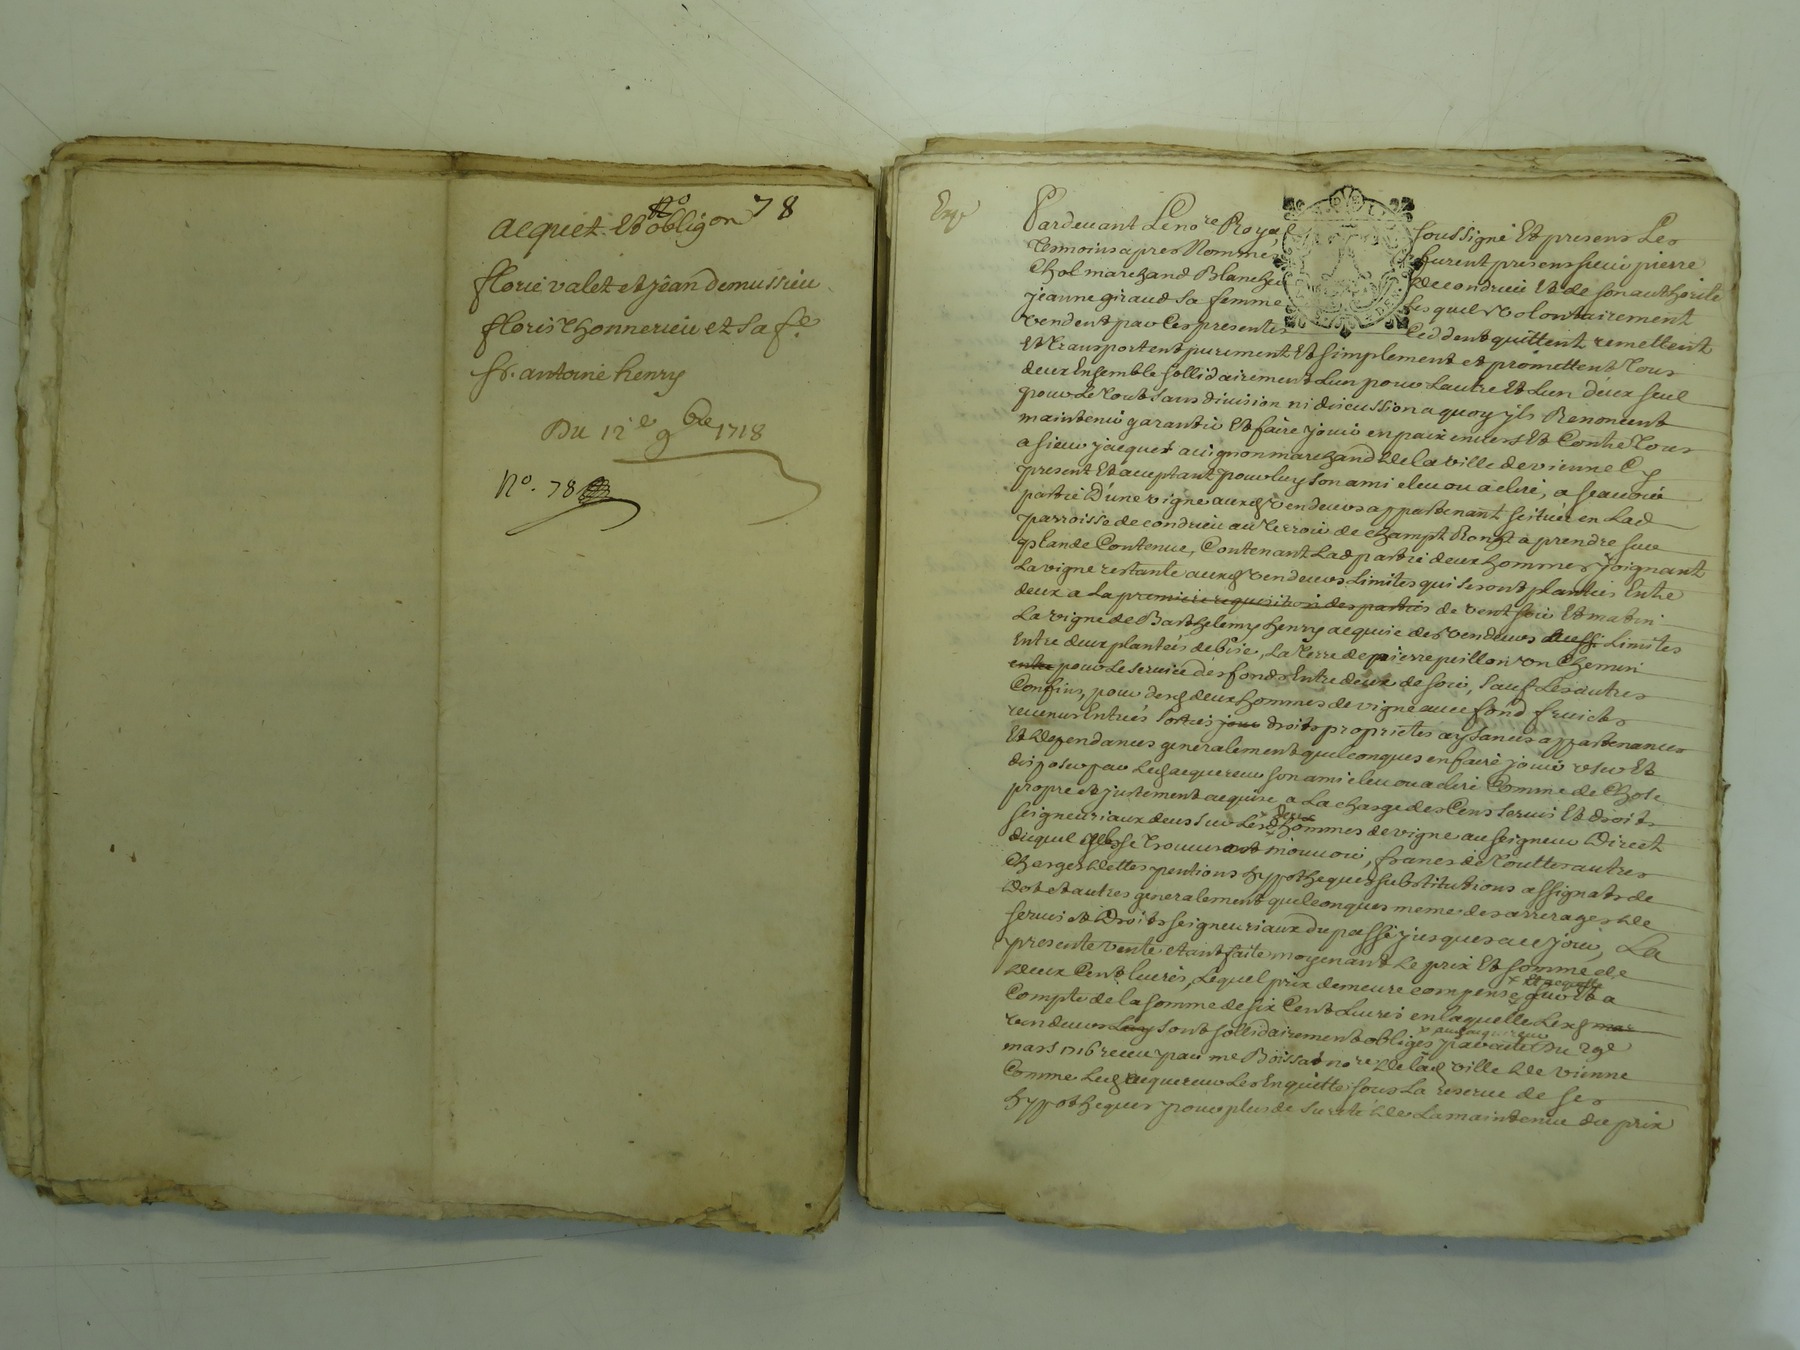 No 78
acquet. Et obligon
florie valet et jean demussieu
floris thonnerieu et sa fe.
sr. antoine henry
Du 12e 9bre 1718
No. 78
Exp
Pardevant Le nore Royal soussigné Et presens Les
tesmoins apres Nommes furent presens sieur pierre
Chol marchand Blancher de condrieu Et de son authorité
jeanne giraud sa femme Lesquels volontairement
vendent par Ces presentes Ceddent quittent remettent
Et transportent purement Et simplement et promettent tous
deux Ensemble sollidairement Lun pour Lautre Et Lun deux seul
pour Le tout sans division ni discussion a quoy jls Renoncent
maintenir garantir Et faire jouir en paix envers Et Contre tous
a sieur jacques avignon marchand de la ville de vienne Cy
present Et acceptant pour luy son ami eleu ou a elire, a scavoir
partie d'une vigne auxd vendeurs appartenant scituée en Lad
parroisse de condrieu au terroir de champt Rond à prendre sur
plus grande Contenue, Contenant Lad partie deux hommes joignant
La vigne restante auxd vendeurs Limites qui seront plantées Entre
deux a La premiere requisition des parties de vent soir Et matin
La vigne de Barthelemy henry acquise des vendeurs aussi Limites
Entre deux plantées de bise, La terre de pierre peillon un Chemin
entre pour Le service des fonds Entre deux de soir, sauf Les autres
Confins, pour desd deux hommes de vigne avec fond fruicts
revenus Entrées sorties jour droits proprietes aysances appartenances
Et dependances generalement quelconques en faire jouir user Et
disposer par Led acquereur son ami eleu ou a elire Comme de Chose
propre et justement acquise a La charge des Cens servis Et droits
seigneuriaux deus sur Lesd deux hommes de vigne au seigneur Direct
duquel elles se trouveront mouvoir, francs de touttes autres
Charges dettes pentions hypotheques substitutions assignats de
dot et autres generalement quelconques meme des arrerages de
servis et droits seigneuriaux du passé jusques a ce jour, La
presente vente etant faite moyenant Le prix Et somme de
deux Cent livres, Lequel prix demeure compensé
Compte de la somme de six Cent Livres en laquelle Lesd
vendeurs sont sollidairement obligés par acte du 29e
mars 1716 receu par me Boissat nore de lad ville de vienne
Comme Led acquereur Les En quitte sous La reserve de ses
hypotheques pour plus de sureté de La maintenue du prix